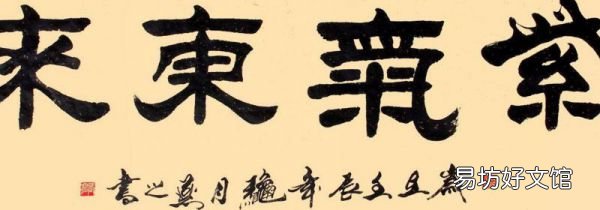 紫氣東來
歲在壬辰年龝月燕之書
易坊好文馆